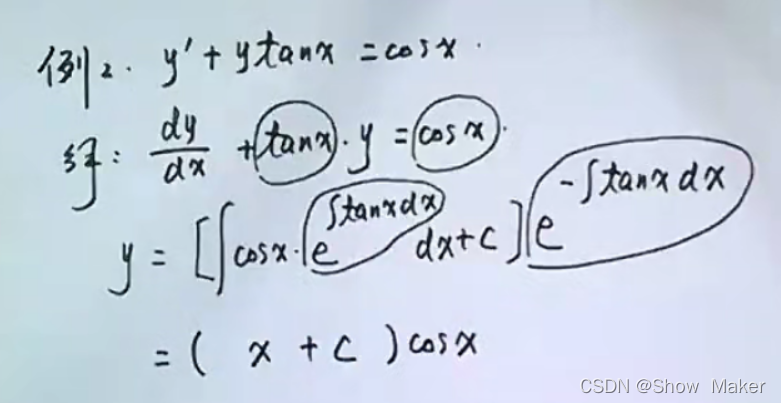 例2. y′ + ytanx = cosx.
解: dy/dx + tanx · y = cosx.
y = [∫cosx·e^{∫tanxdx} dx+C]e^{-∫tanxdx}
= ( x + C )cosx
CSDN @Show_Maker